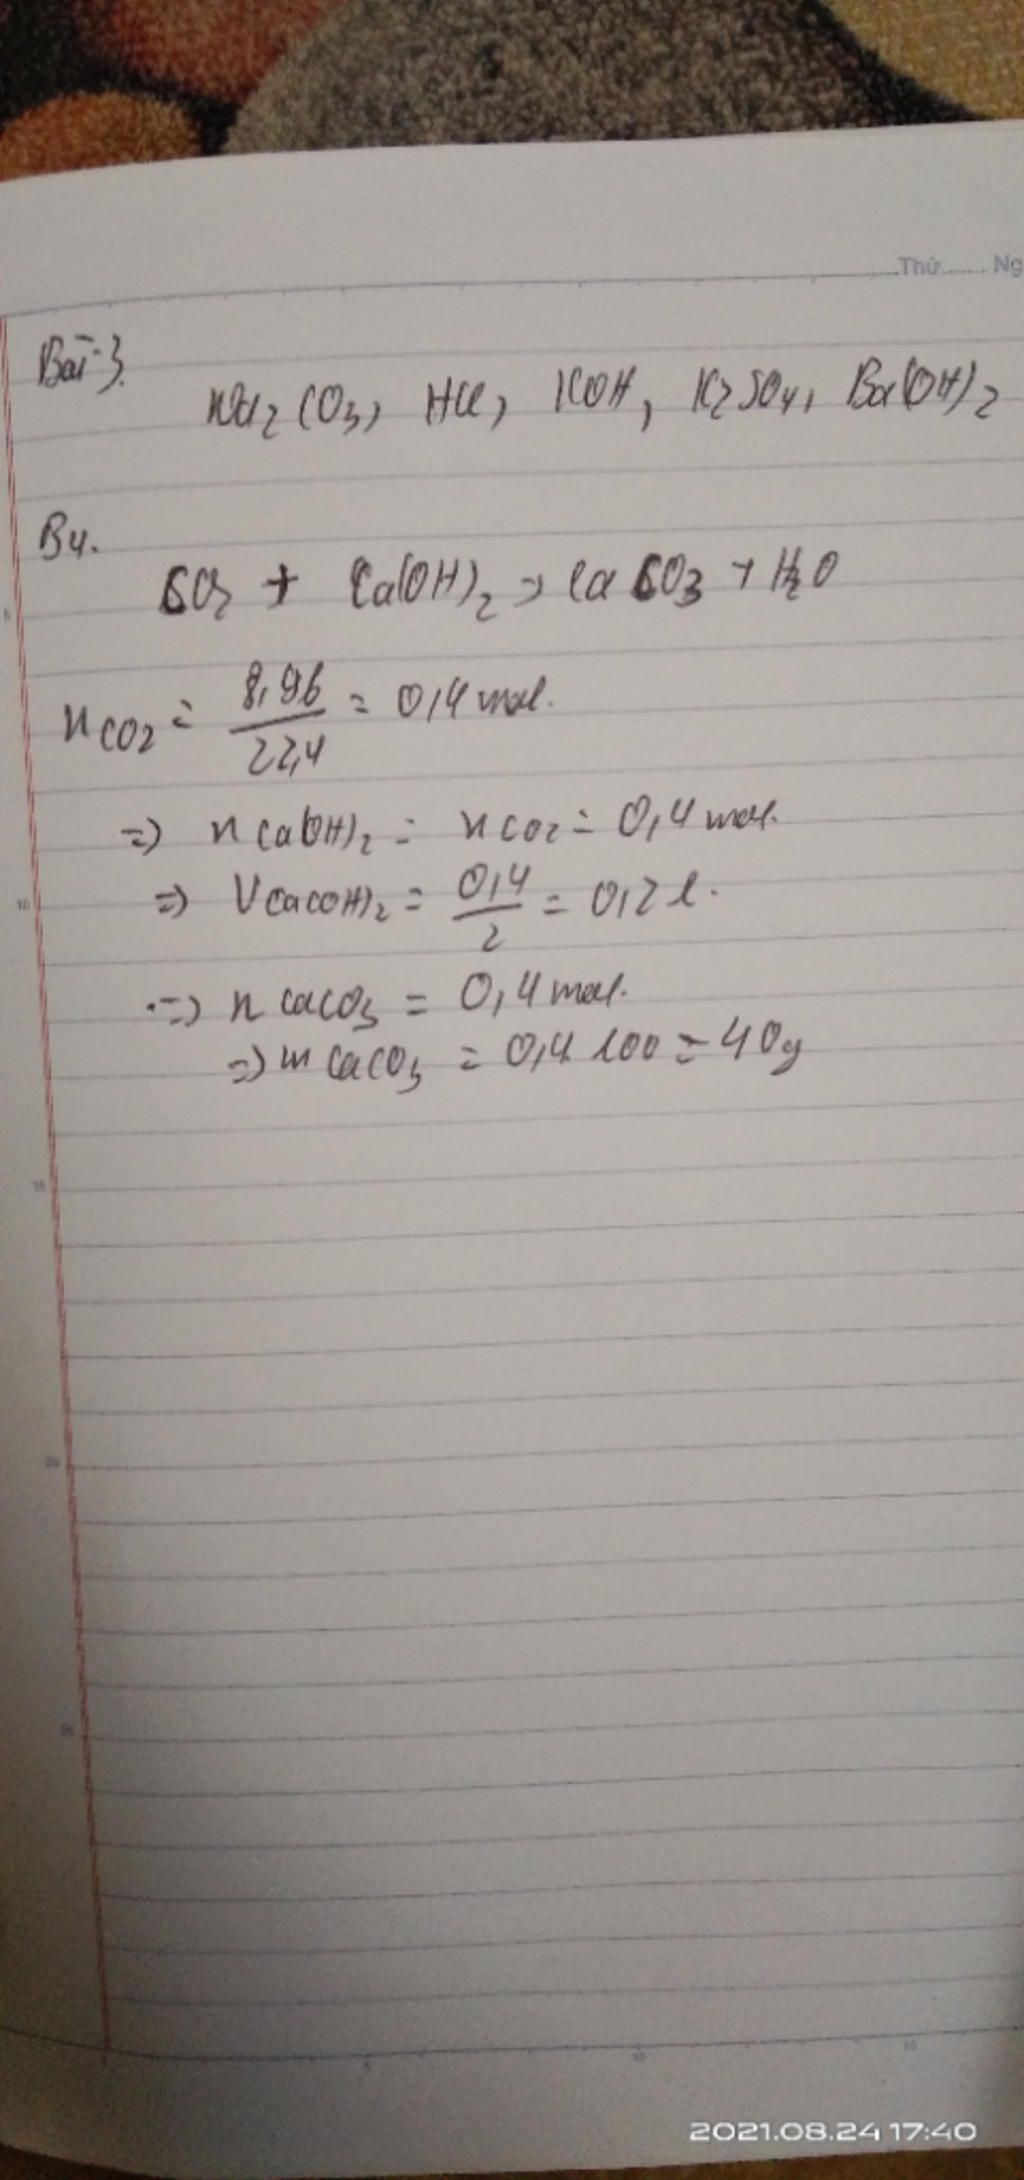 Thứ....... Ng
Bài 3.
Na2CO3, HCl, KOH, K2SO4, Ba(OH)2
B4.
CO2 + Ca(OH)2 → CaCO3 + H2O
nCO2 = 8,96/22,4 = 0,4 mol.
=) nCa(OH)2 = nCO2 = 0,4 mol.
=) VCa(OH)2 = 0,4/2 = 0,2 l.
=) nCaCO3 = 0,4 mol.
=) mCaCO3 = 0,4.100 = 40g
5
10
15
20
25
5
10
15
2021.08.24 17:40